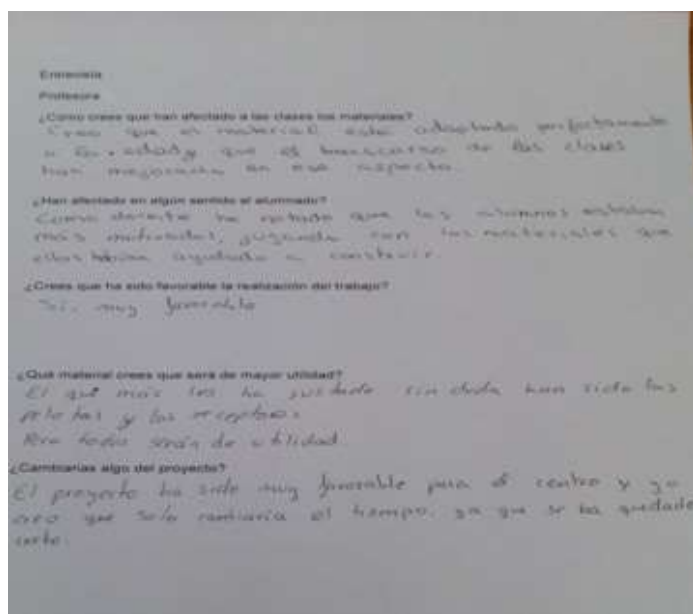 Entrevista
Profesora
¿Cómo crees que han afectado a las clases los materiales?
Creo que el material está adaptado perfectamente
a su edad y que el transcurso de las clases
han mejorado en ese aspecto.
¿Han afectado en algún sentido al alumnado?
Como docente he notado que los alumnos estaban
más motivados, jugando con los materiales que
ellos habían ayudado a construir.
¿Crees que ha sido favorable la realización del trabajo?
Sí, muy favorable
¿Qué material crees que será de mayor utilidad?
El que más les ha gustado sin duda han sido las
pelotas y los
Pero todos serán de utilidad.
¿Cambiarías algo del proyecto?
El proyecto ha sido muy favorable para el centro y yo
creo que solo cambiaria el tiempo, ya que se ha quedado
corto.